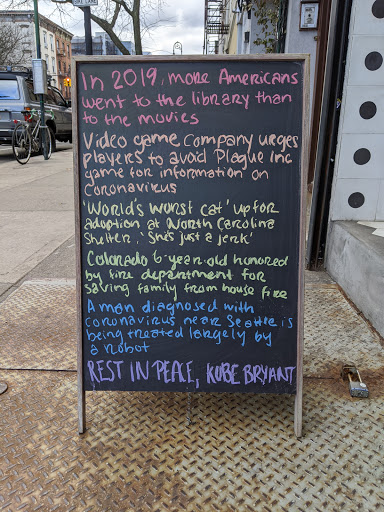 In 2019, more Americans
went to the library than
to the movies
Video game company urges
players to avoid Plague Inc
game for information on
Coronavirus
'World's worst cat' up for
adoption at North Carolina
Shelter: 'She's just a jerk'
Colorado 6-year-old honored
by fire department for
saving family from house fire
A man diagnosed with
coronavirus near Seattle is
being treated largely by
a robot
REST IN PEACE, KOBE BRYANT